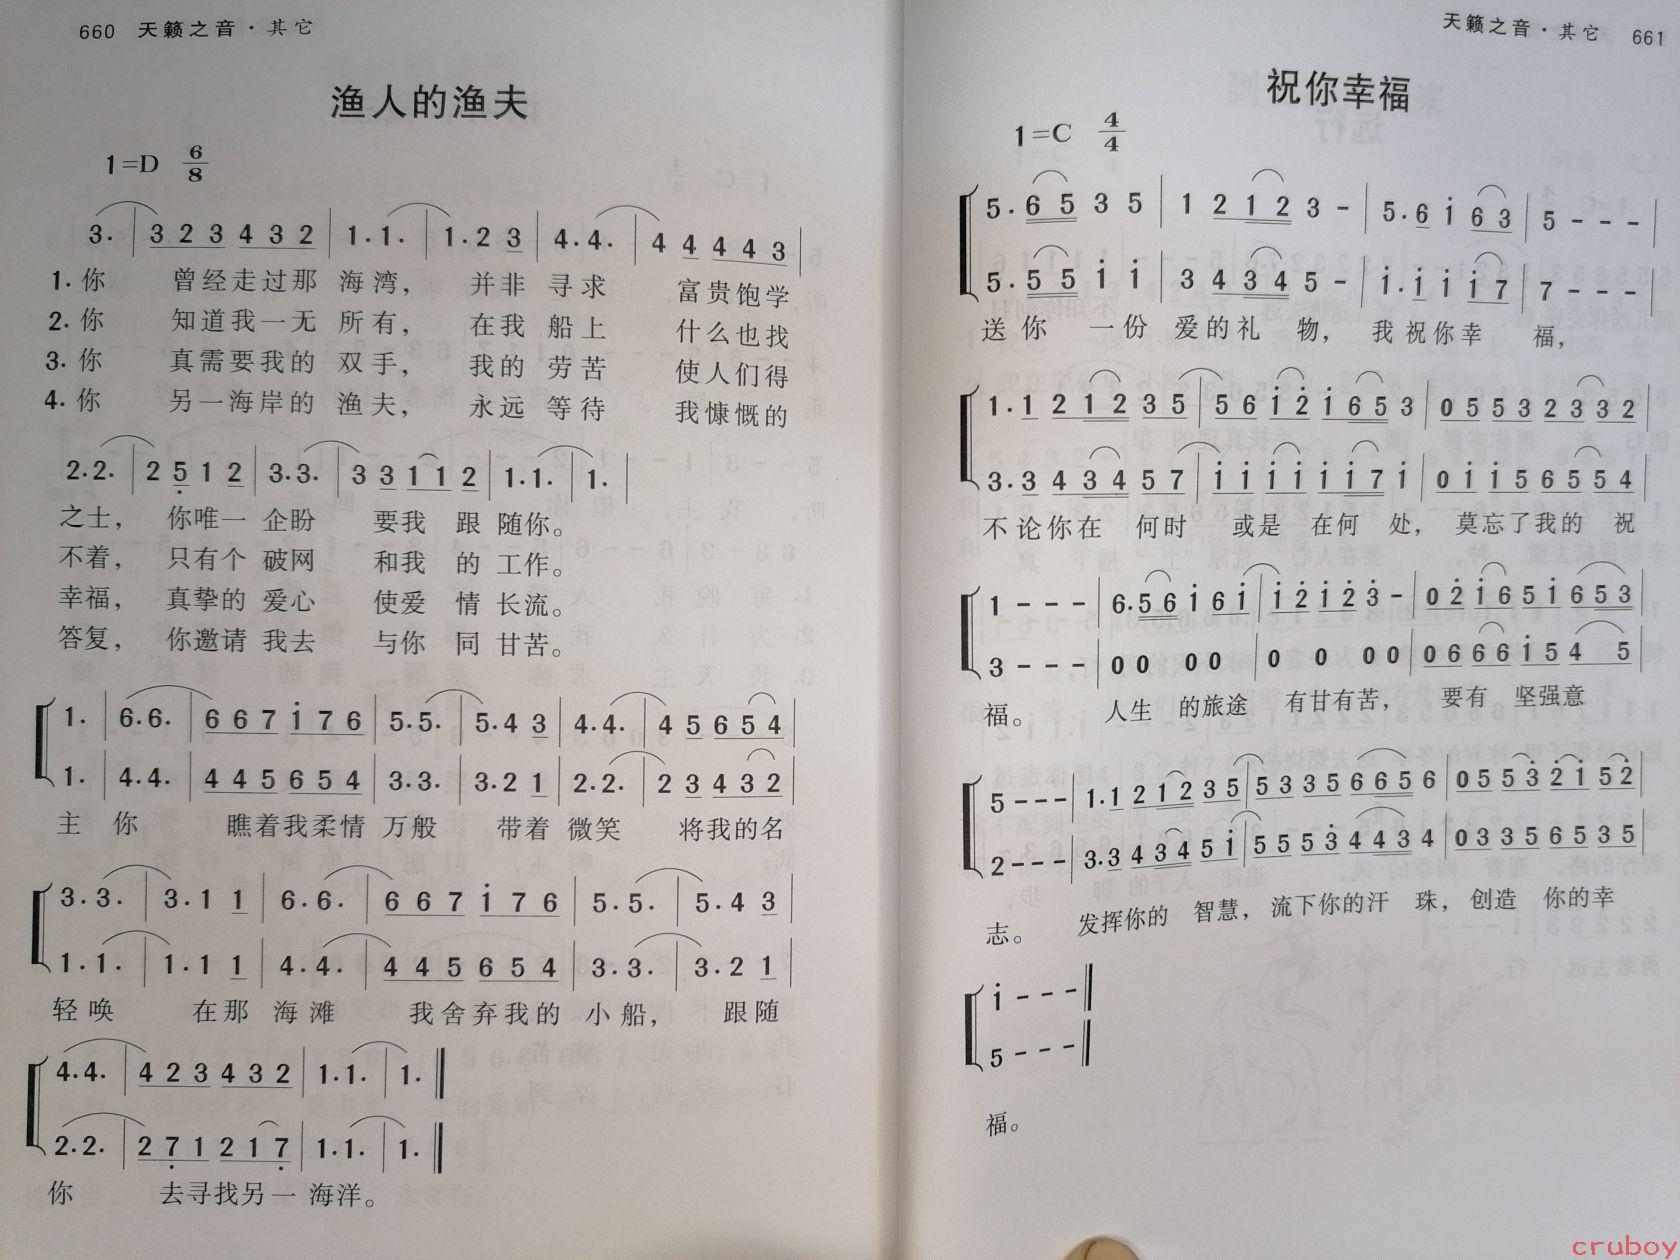 660 天籁之音·其它
渔人的渔夫
1=D 6/8
3. | 3 2 3 4 3 2 | 1. 1. | 1. 2 3 | 4. 4. | 4 4 4 4 3 |
1. 你 曾经走过那 海湾， 并非 寻求 富贵饱学
2. 你 知道我一无 所有， 在我 船上 什么也找
3. 你 真需要我的 双手， 我的 劳苦 使人们得
4. 你 另一海岸的 渔夫， 永远 等待 我慷慨的
2. 2. | 2 5̣ 1 2 | 3. 3. | 3 3 1 1 2 | 1. 1. | 1. |
之士， 你唯一 企盼 要我 跟 随你。
不着， 只有个 破网 和我 的 工作。
幸福， 真挚的 爱心 使爱 情 长流。
答复， 你邀请 我去 与你 同 甘苦。
1. | 6. 6. | 6 6 7 i 7 6 | 5. 5. | 5. 4 3 | 4. 4. | 4 5 6 5 4 |
1. | 4. 4. | 4 4 5 6 5 4 | 3. 3. | 3. 2 1 | 2. 2. | 2 3 4 3 2 |
主 你 瞧着我柔情 万般 带着 微笑 将我的名
3. 3. | 3. 1 1 | 6. 6. | 6 6 7 i 7 6 | 5. 5. | 5. 4 3 |
1. 1. | 1. 1 1 | 4. 4. | 4 4 5 6 5 4 | 3. 3. | 3. 2 1 |
轻唤 在那 海滩 我舍弃我的 小船， 跟随
4. 4. | 4 2 3 4 3 2 | 1. 1. | 1. ‖
2. 2. | 2 7̣ 1 2 1 7̣ | 1. 1. | 1. ‖
你 去寻找另一 海洋。
天籁之音·其它 661
祝你幸福
1=C 4/4
5. 6 5 3 5 | 1 2 1 2 3 - | 5. 6 i 6 3 | 5 - - - |
5. 5 5 i i | 3 4 3 4 5 - | i. i i i 7 | 7 - - - |
送你 一份 爱的礼 物， 我祝你幸 福，
1. 1 2 1 2 3 5 | 5 6 i 2̇ i 6 5 3 | 0 5 5 3 2 3 3 2 |
3. 3 4 3 4 5 7 | i i i i i i 7 i | 0 i i 5 6 5 5 4 |
不论你在 何时 或是 在何 处， 莫忘了我的 祝
1 - - - | 6. 5 6 i 6 i | i 2̇ i 2̇ 3̇ - | 0 2̇ i 6 5 i 6 5 3 |
3 - - - | 0 0 0 0 | 0 0 0 0 | 0 6 6 6 i 5 4 5 |
福。 人生 的旅途 有甘有苦， 要有 坚强意
5 - - - | 1. 1 2 1 2 3 5 | 5 3 3 5 6 6 5 6 | 0 5 5 3̇ 2̇ i 5 2̇ |
2 - - - | 3. 3 4 3 4 5 i | 5 5 5 3̇ 4 4 3 4 | 0 3 3 5 6 5 3 5 |
志。 发挥你的 智慧， 流下你的汗 珠， 创造 你的幸
i - - - ‖
5 - - - ‖
福。
cruboy